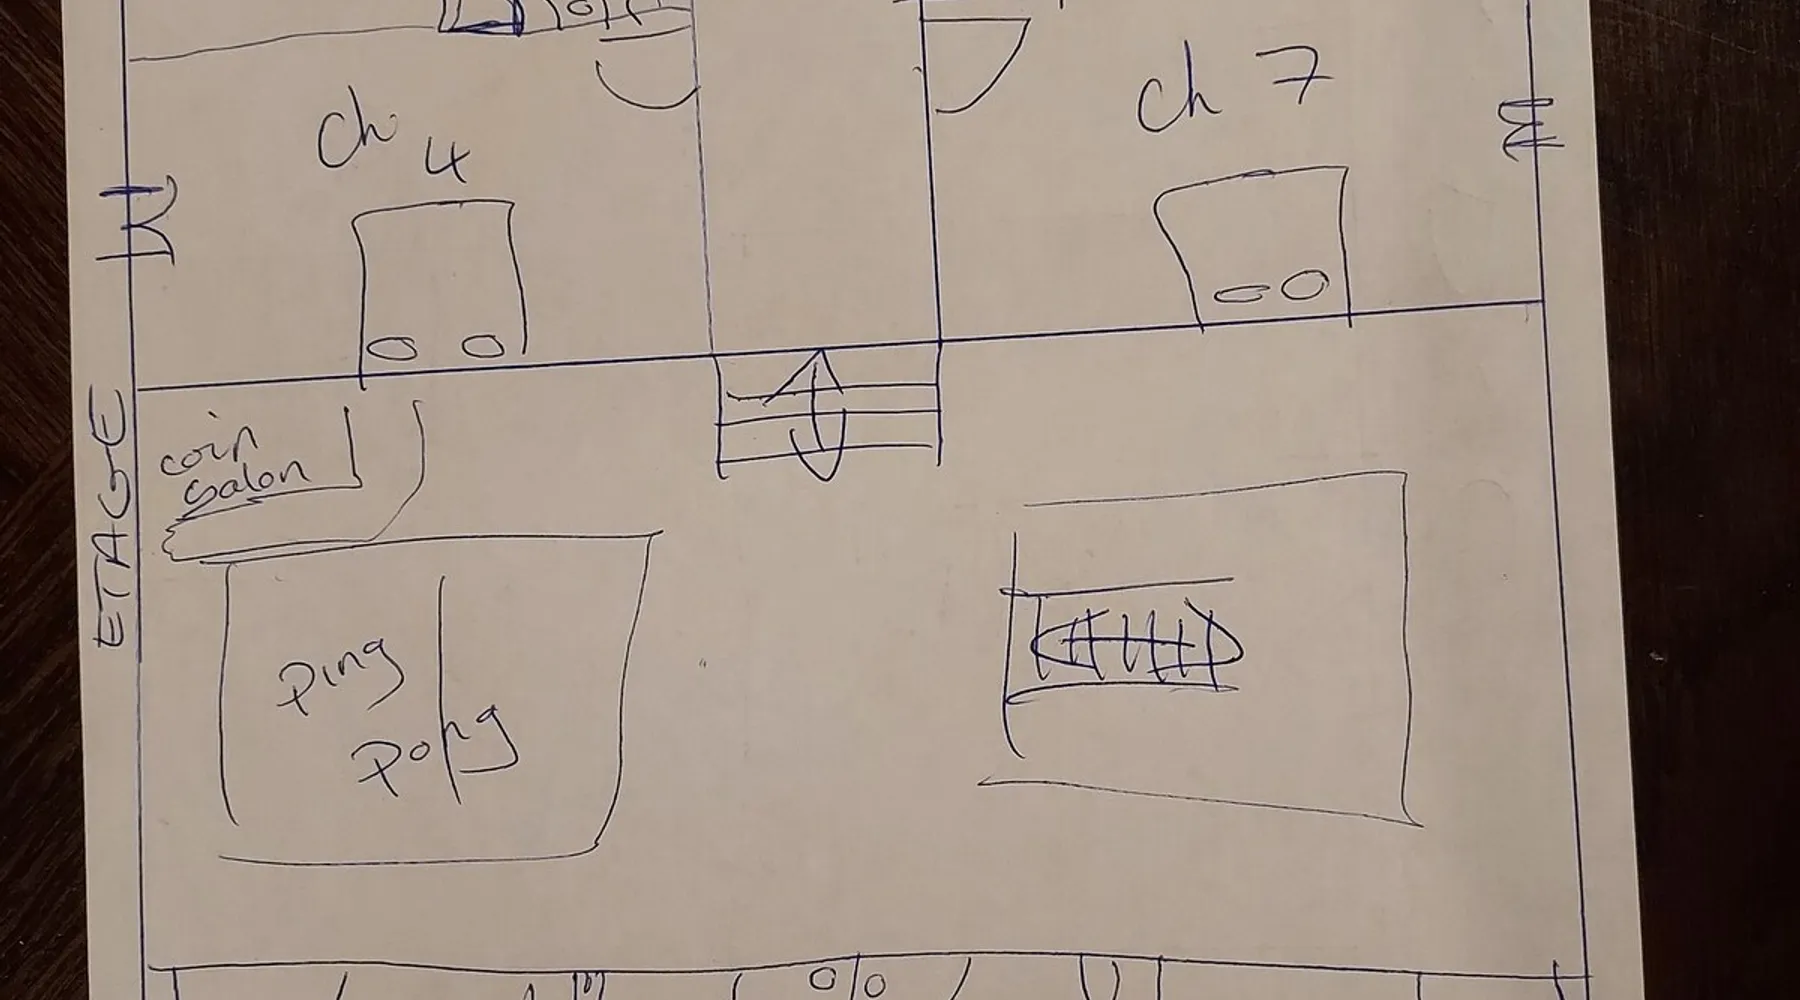 ch 4
ch 7
ETAGE
coin
salon
Ping
Pong